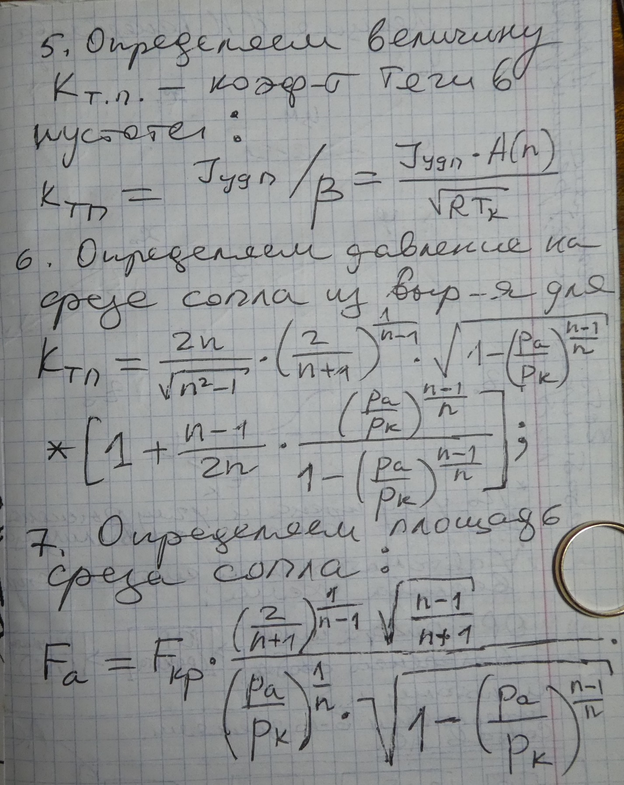 5. Определяем величину
Kт.п. – коэф-т тяги в
пустоте:
Kтп = Jудп / β = Jудп · A(n) / √RTк
6. Определяем давление на
срезе сопла из выр-я для
Kтп = 2n/√(n²-1) · (2/(n+1))^(1/(n-1)) · √(1-(pa/pк)^((n-1)/n))
* [1 + (n-1)/(2n) · (pa/pк)^((n-1)/n) / (1-(pa/pк)^((n-1)/n))];
7. Определяем площадь
среза сопла:
Fa = Fкр · (2/(n+1))^(1/(n-1)) √((n-1)/(n+1)) / ((pa/pк)^(1/n) · √(1-(pa/pк)^((n-1)/n))).